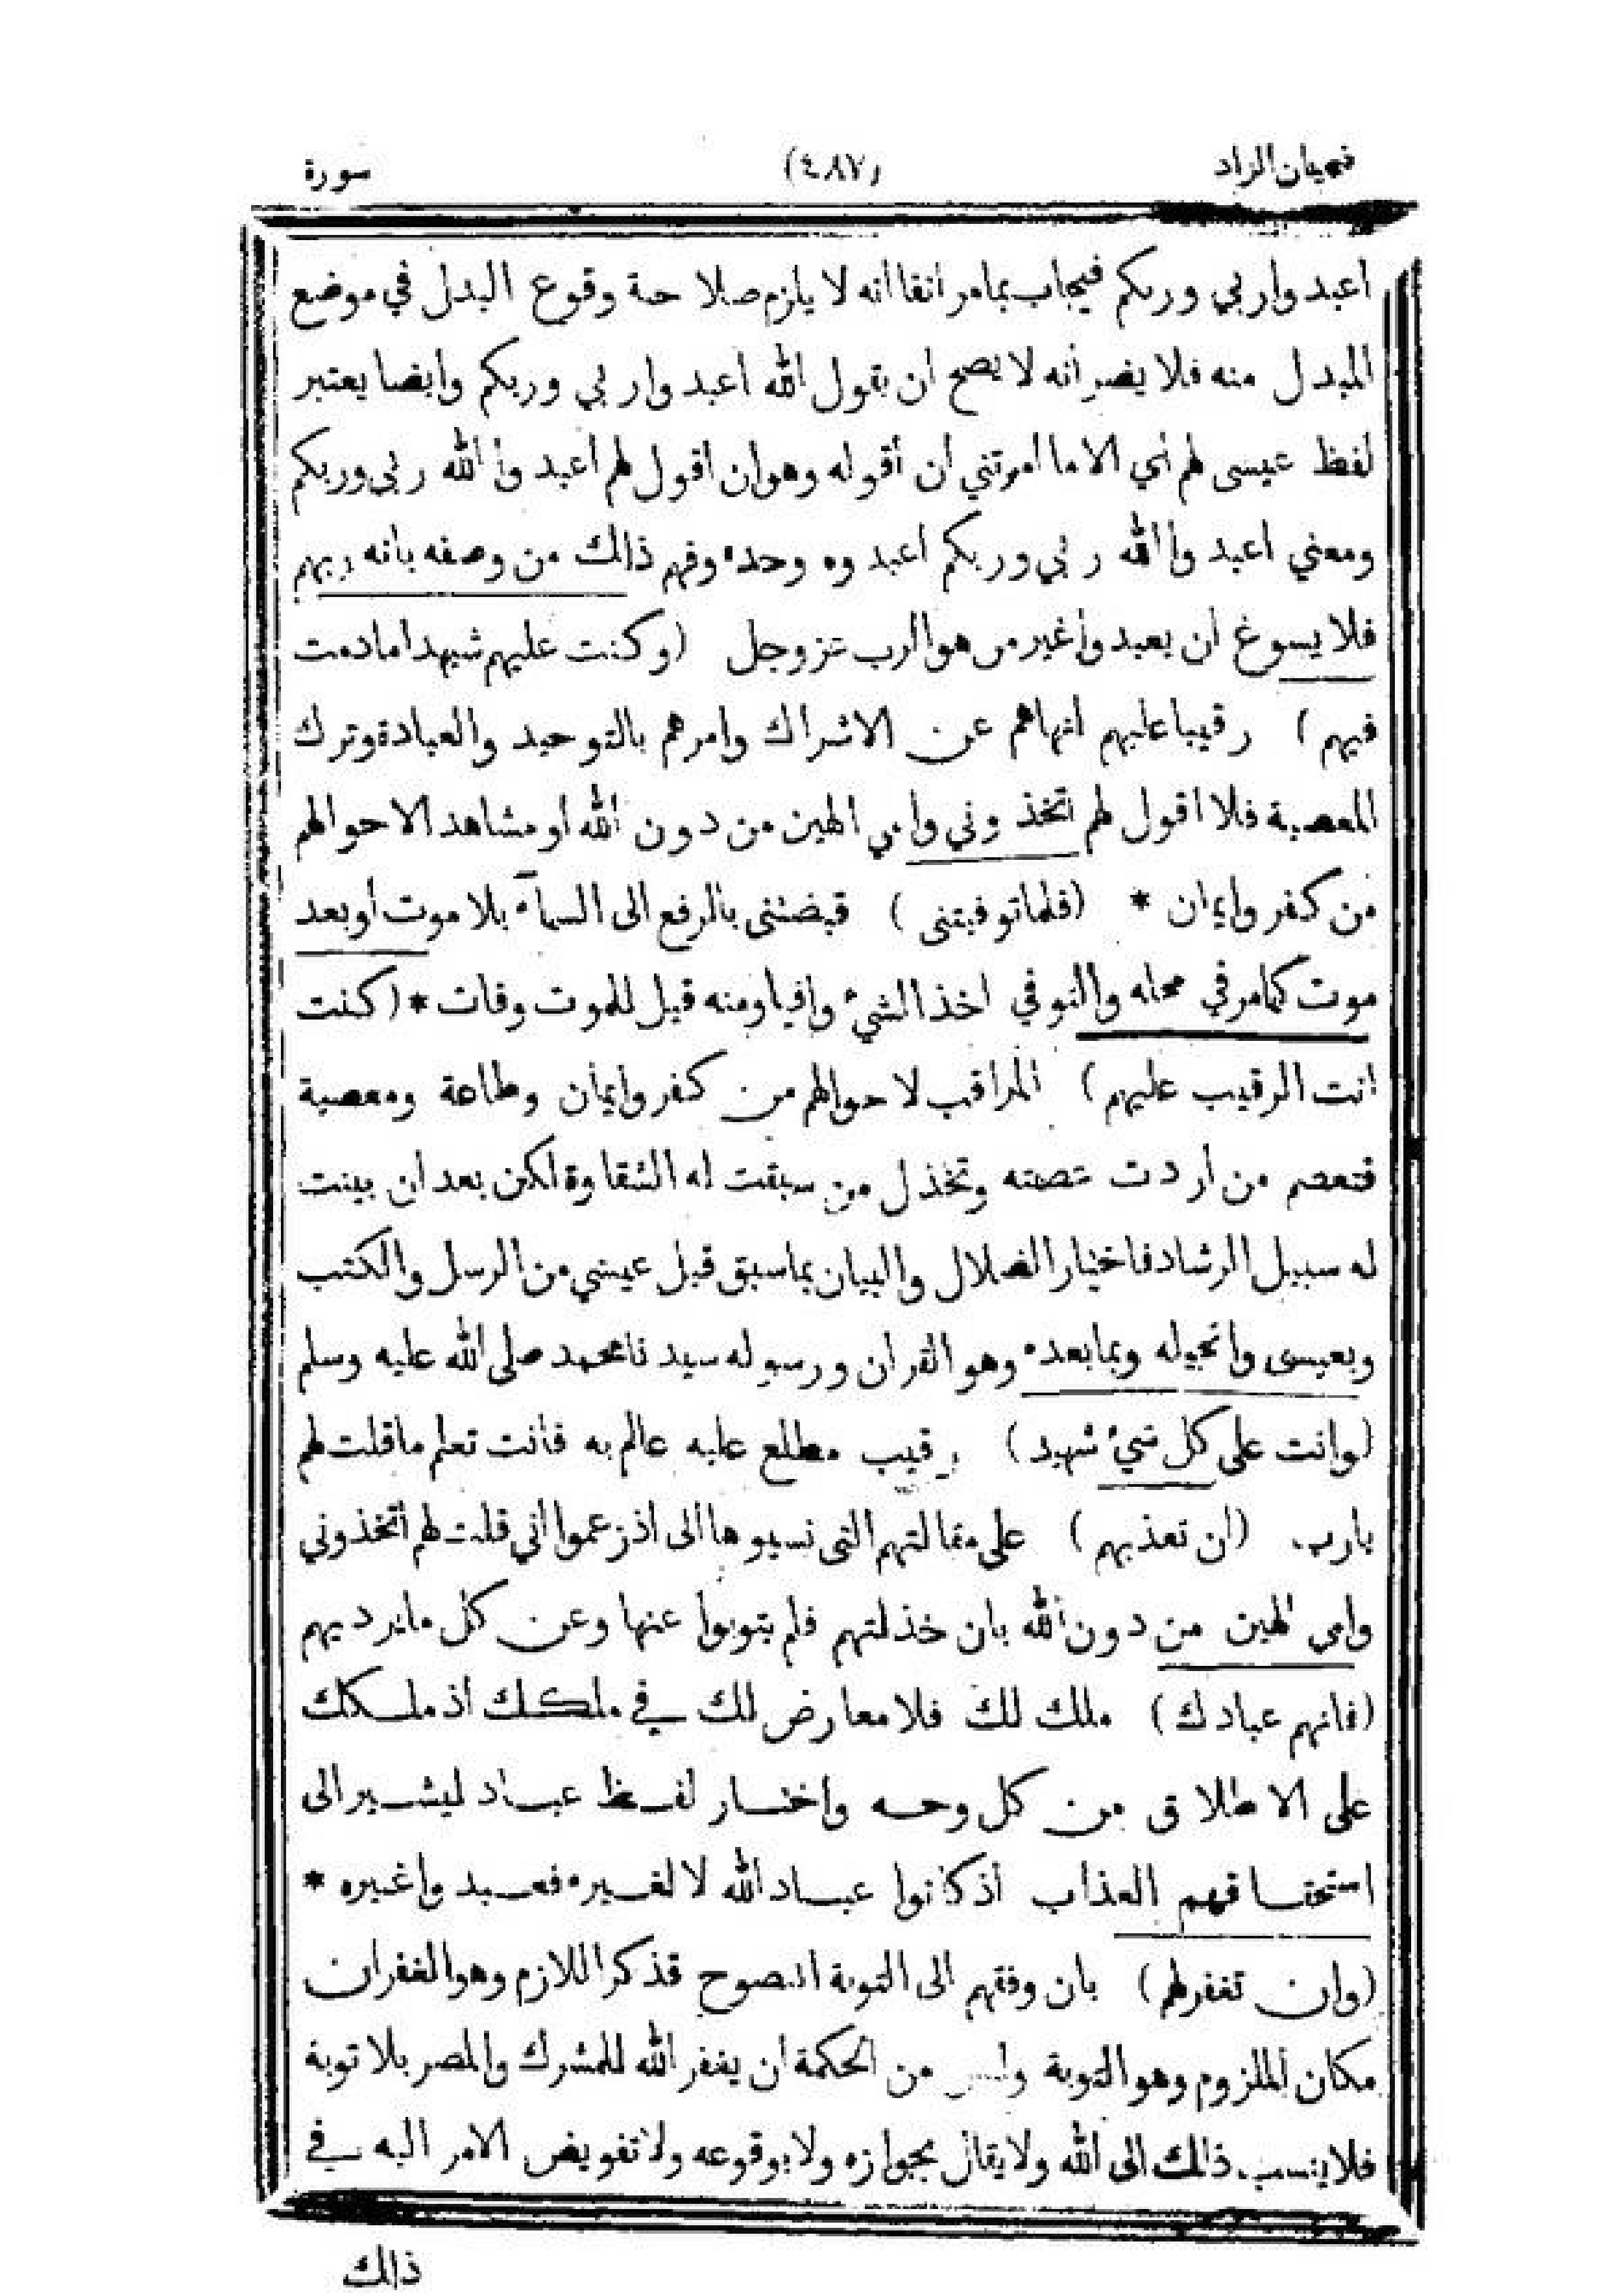 هميان الزاد (٤٨٧) سورة
اعبدوا ربي وربكم فيجاب بما مر انفا انه لا يلزم صلاحة وقوع البدل في موضع
المبدل منه فلا يضر انه لا يصح ان يقول الله اعبدوا ربي وربكم وايضا يعتبر
لفظ عيسى لهم أي الا ما امرتني ان أقوله وهو ان اقول لهم اعبدوا الله ربي وربكم
ومعني اعبدوا الله ربي وربكم اعبدوه وحده وفهم ذالك من وصفه بانه ربهم
فلا يسوغ ان يعبدوا غير من هو الرب عز وجل (وكنت عليهم شهيدا ما دمت
فيهم) رقيبا عليهم انهاهم عن الاشراك وامرهم بالتوحيد والعبادة وترك
المعصية فلا اقول لهم اتخذوني وامي الهين من دون الله أو مشاهد الاحوالهم
من كفر وايمان * (فلما توفيتنى) قبضتنى بالرفع الى السمآء بلا موت أو بعد
موت كما مر في محله والتوفي اخذ الشيء وافيا ومنه قيل للموت وفات * (كنت
انت الرقيب عليهم) المراقب لاحوالهم من كفر وايمان وطاعة ومعصية
فتعصم من اردت عصمته وتخذل من سبقت له الشقاوة لكن بعد ان بينت
له سبيل الرشاد فاختار الضلال والبيان بما سبق قبل عيسي من الرسل والكتب
وبعيسى وانجيله وبما بعده وهو القران ورسوله سيدنا محمد صلى الله عليه وسلم
(وانت على كل شيء شهيد) رقيب مطلع عليه عالم به فأنت تعلم ما قلت لهم
يارب (ان تعذبهم) على مقالتهم التى نسبوها الى اذ زعموا اني قلت لهم أتخذوني
وامى الهين من دون الله بان خذلتهم فلم يتوبوا عنها وعن كل ما يرديهم
(فانهم عبادك) ملك لك فلا معارض لك في ملكك اذ ملكك
على الاطلاق من كل وجه واختار لفظ عباد ليشير الى
استحقاقهم العذاب اذ كانوا عباد الله لا لغيره فعبدوا غيره *
(وان تغفر لهم) بان وفقهم الى التوبة النصوح فذكر اللازم وهو الغفران
مكان الملزوم وهو التوبة وليس من الحكمة ان يغفر الله للمشرك والمصر بلا توبة
فلا ينسب ذالك الى الله ولا يقال بجوازه ولا بوقوعه ولا تفويض الامر اليه في
ذالك